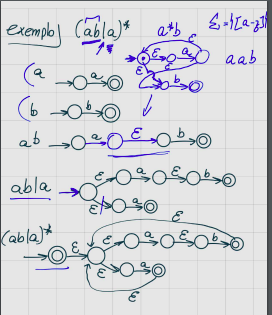 exemplo (ab|a)* a*b Σ=[a-z]
ε a ε
ε ε
b
a a b
a a
b b
ab a ε b
ab|a ε a ε b
ε a
(ab|a)* ε
ε ε a ε b
ε a
ε